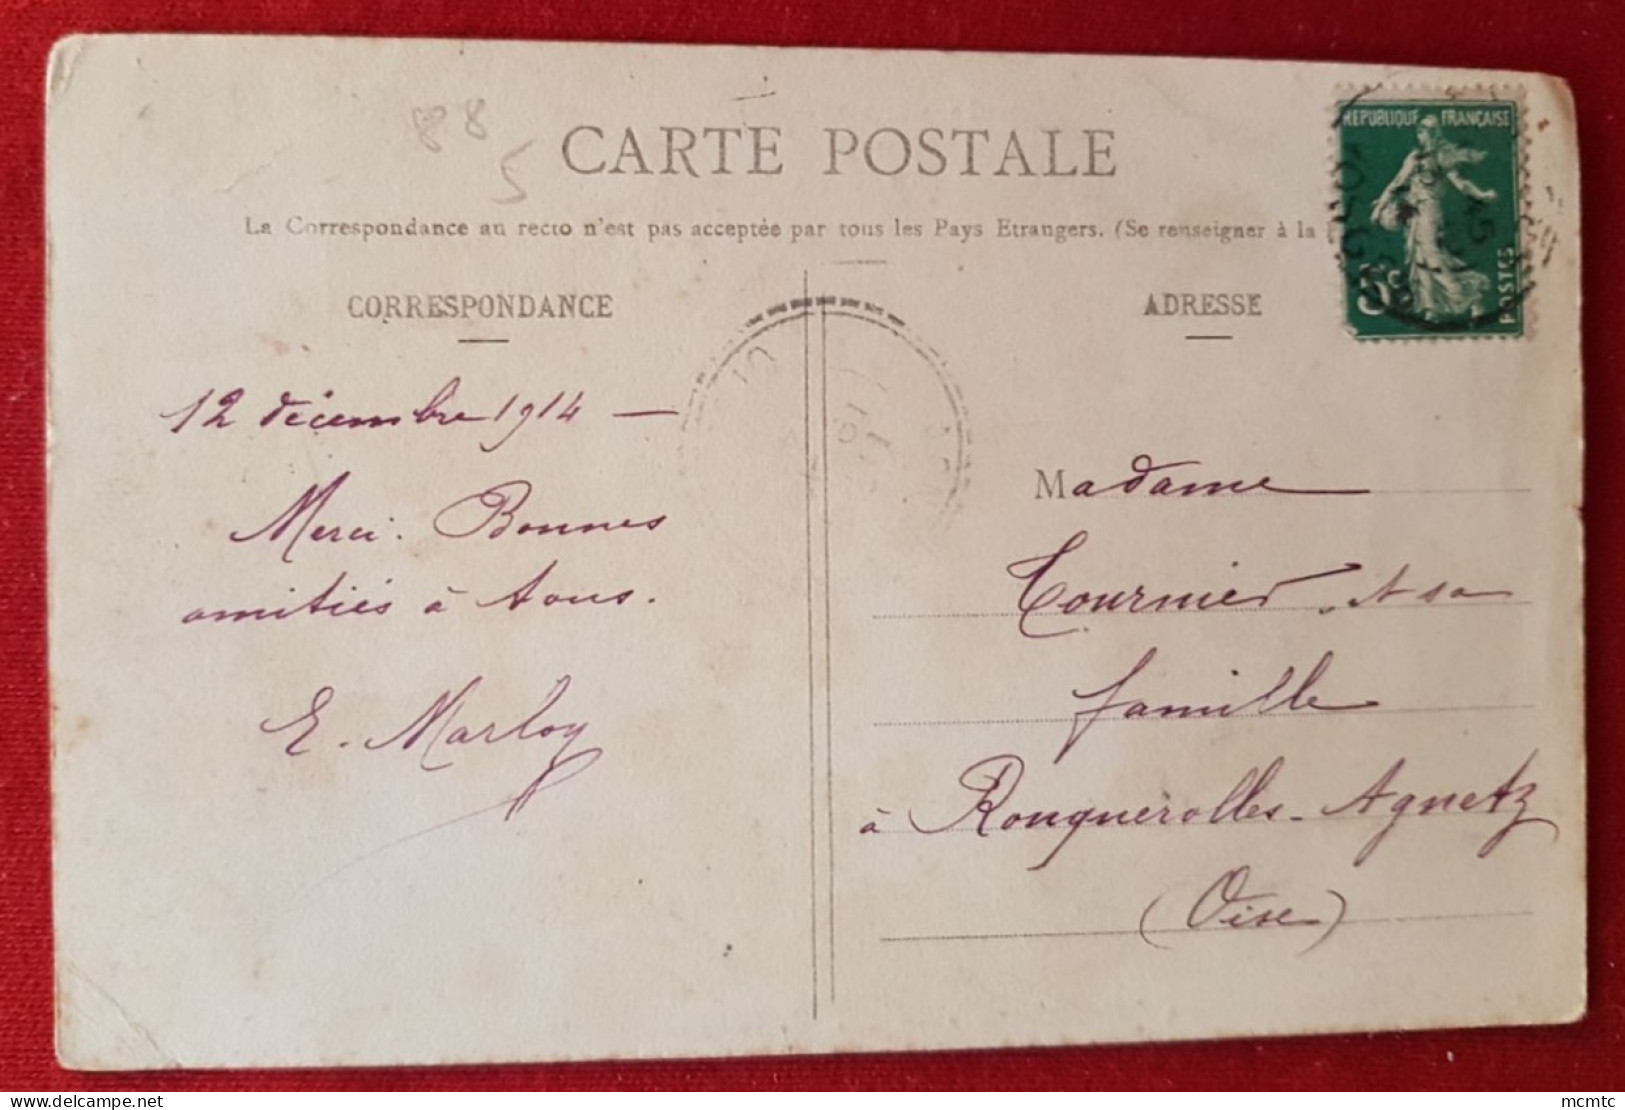 88
5
CARTE POSTALE
La Correspondance au recto n'est pas acceptée par tous les Pays Etrangers. (Se renseigner à la
CORRESPONDANCE
ADRESSE
REPUBLIQUE FRANÇAISE
5c
POSTES
VOSGES
12 décembre 1914 —
Merci. Bonnes
amitiés à tous.
E. Marloy
Madame
Tournier et sa
famille
à Ronquerolles-Agnetz
(Oise)
mcmtc